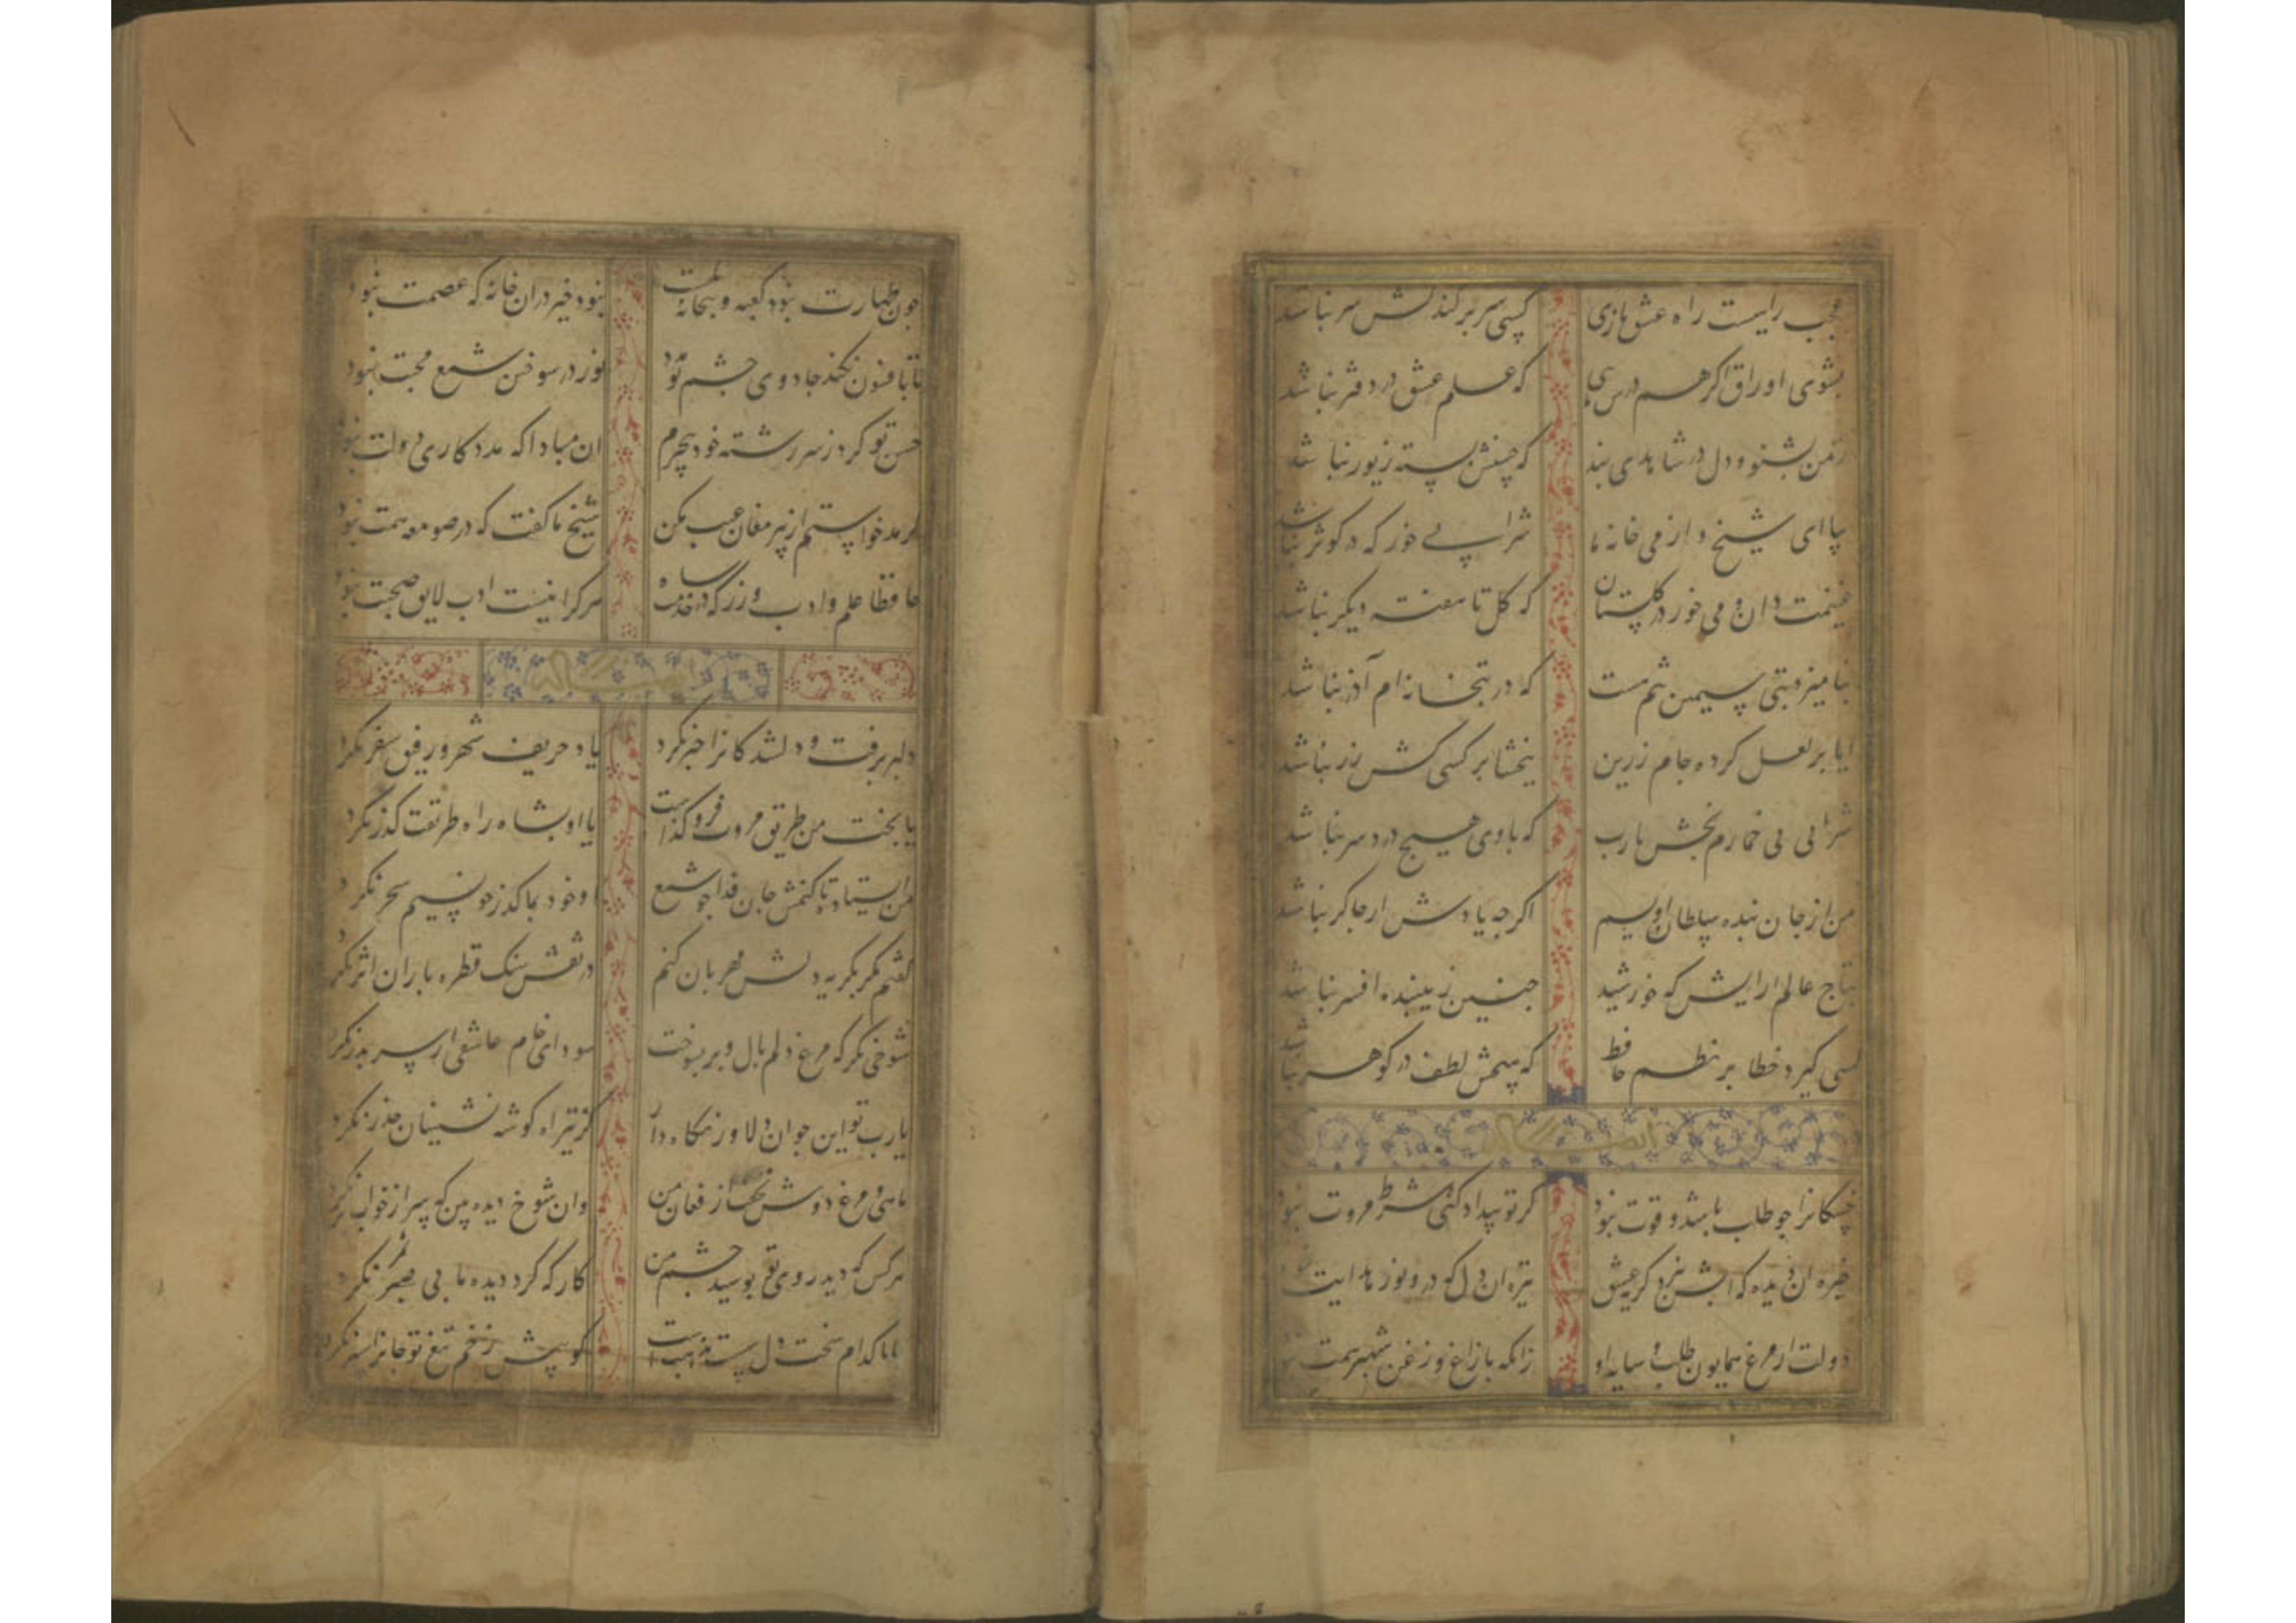 عجب راهیست راه عشق بازی کسی سر برکند کش سر نباشد
بشوی اوراق اگر هم درس مایی که علم عشق در دفتر نباشد
زمن بشنو و دل در شاهدی بند که حسنش بسته زیور نباشد
بیا ای شیخ و از می خانه ما شرابی خور که در کوثر نباشد
غنیمت دان و می خور در گلستان که گل تا هفته دیگر نباشد
بنامیزد بتی سیمین تنم هست که در بتخانه ام آذر نباشد
ایا پر لعل کرده جام زرین ببخشا بر کسی کش زر نباشد
شرابی بی خمارم بخش یارب که با وی هیچ درد سر نباشد
من از جان بنده سلطان اویسم اگر چه یادش از چاکر نباشد
بتاج عالم ارایش که خورشید چنین زیبنده افسر نباشد
کسی گیرد خطا بر نظم حافظ که هیچش لطف در گوهر نباشد
خستگانرا چو طلب باشد و قوت نبود گر تو بیداد کنی شرط مروت نبود
خیره ان دیده که ابش نبرد گریه عشق تیره ان دل که درو نور
دولت از مرغ همایون طلب و سایه او زانکه با زاغ و زغن شهپر همت
چون طهارت نبود کعبه و بتخانه یکیست نبود خیر در ان خانه که عصمت نبود
تا بافسون نکند جادوی چشم تو مدد نور در سوختن شمع محبت نبود
حسن تو کرد ز سر رشته خود بیخبرم ان مبادا که مددکاری دولت نبود
گر مدد خواستم از پیر مغان عیب مکن شیخ ما گفت که در صومعه همت نبود
حافظا علم و ادب ورز که در خدمت شاه هر کرا نیست ادب لایق صحبت نبود
دلبر برفت و دلشدگانرا خبر نکرد یاد حریف شهر و رفیق سفر نکرد
یا بخت من طریق مروت فرو گذاشت یا او بشاه راه طریقت گذر نکرد
من ایستاده تا کنمش جان فدا چو شمع او خود بما گذر چو نسیم سحر نکرد
گفتم مگر بگریه دلش مهربان کنم در نقش سنگ قطره باران اثر نکرد
شوخی نگر که مرغ دلم بال و پر بسوخت سودای خام عاشقی از سر بدر نکرد
یارب تو این جوان دلاور نگاه دار کز تیر اه گوشه نشینان حذر نکرد
ماهی و مرغ دوش نخفت از فغان من وان شوخ دیده بین که سر از خواب بر نکرد
هر کس که دید روی تو بوسید چشم من کاری که کرد دیده ما بی بصر نکرد
جانا کدام سخت دل کو پیش زخم تیغ تو جانرا سپر نکرد